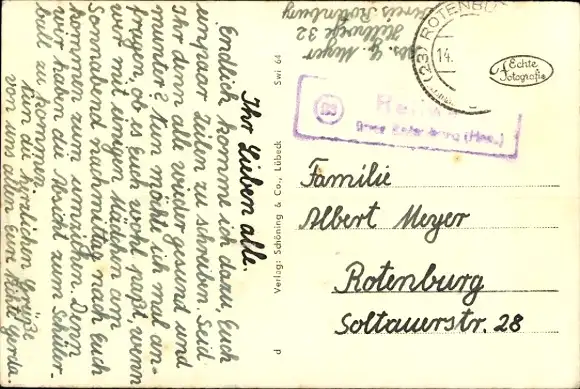 Ihr Lieben alle.
Endlich komme ich dazu, Euch
ein paar Zeilen zu schreiben. Seid
Ihr denn alle wieder gesund und
munter? Nun möchte ich mal an-
fragen, ob es Euch wohl paßt, wenn
wir mit einigen Mädchen am
Sonnabend nachmittag nach Euch
kommen zum umziehen. Denn
wir haben die Absicht zum Schüler-
ball zu kommen.
Nun die herzlichen Grüße
von uns allen Eure Gerda.
Abs. G. Meyer
32
Kreis Rotenburg
Swi 64
Verlag: Schöning & Co., Lübeck
d
(23) ROTENBU
14.
Echte
Fotografie
(23)
Familie
Albert Meyer
Rotenburg
Soltauerstr. 28